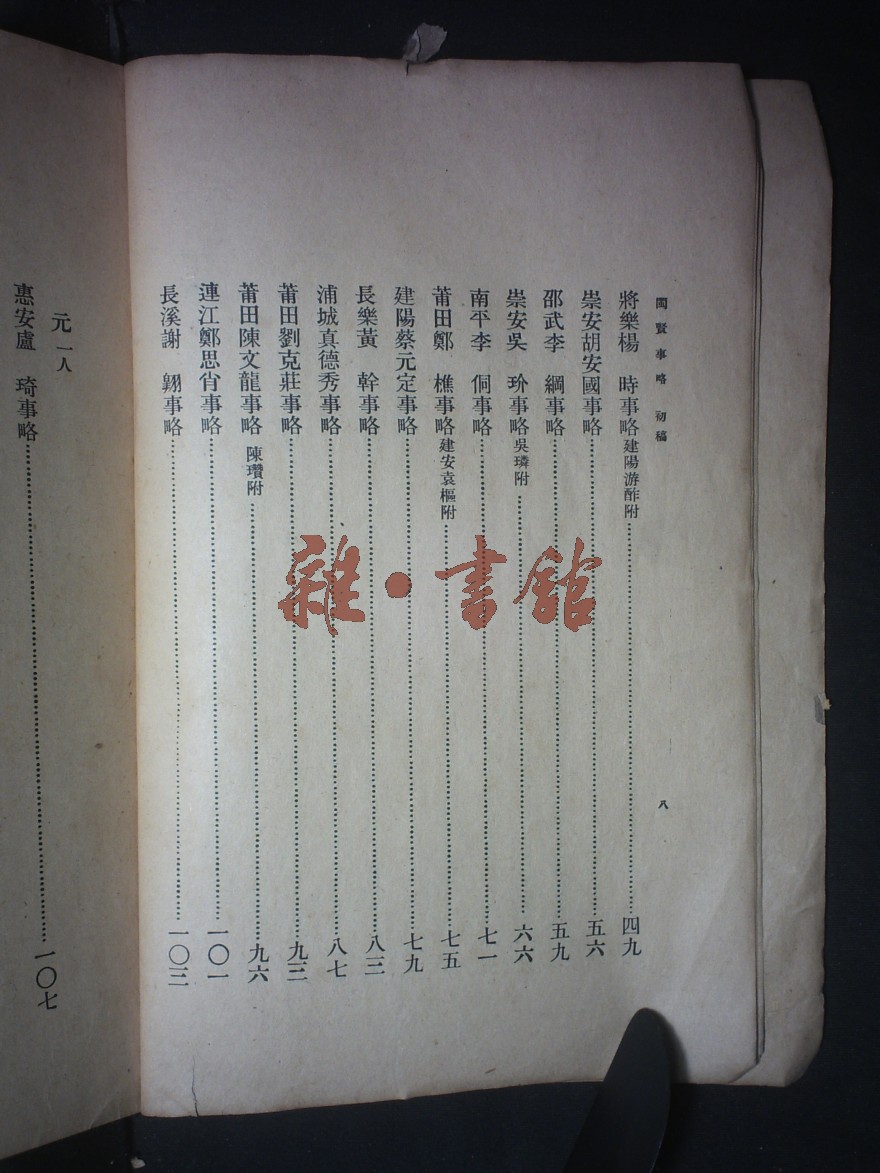 閩賢事略初稿
八
將樂楊　時事略建陽游酢附……四九
崇安胡安國事略……五六
邵武李　綱事略……五九
崇安吳　玠事略吳璘附……六六
南平李　侗事略……七一
莆田鄭　樵事略建安袁樞附……七五
建陽蔡元定事略……七九
長樂黃　幹事略……八三
浦城真德秀事略……八七
莆田劉克莊事略……九三
莆田陳文龍事略陳瓚附……九六
連江鄭思肖事略……一〇一
長溪謝　翱事略……一〇三
元一人
惠安盧　琦事略……一〇七
雜·書館